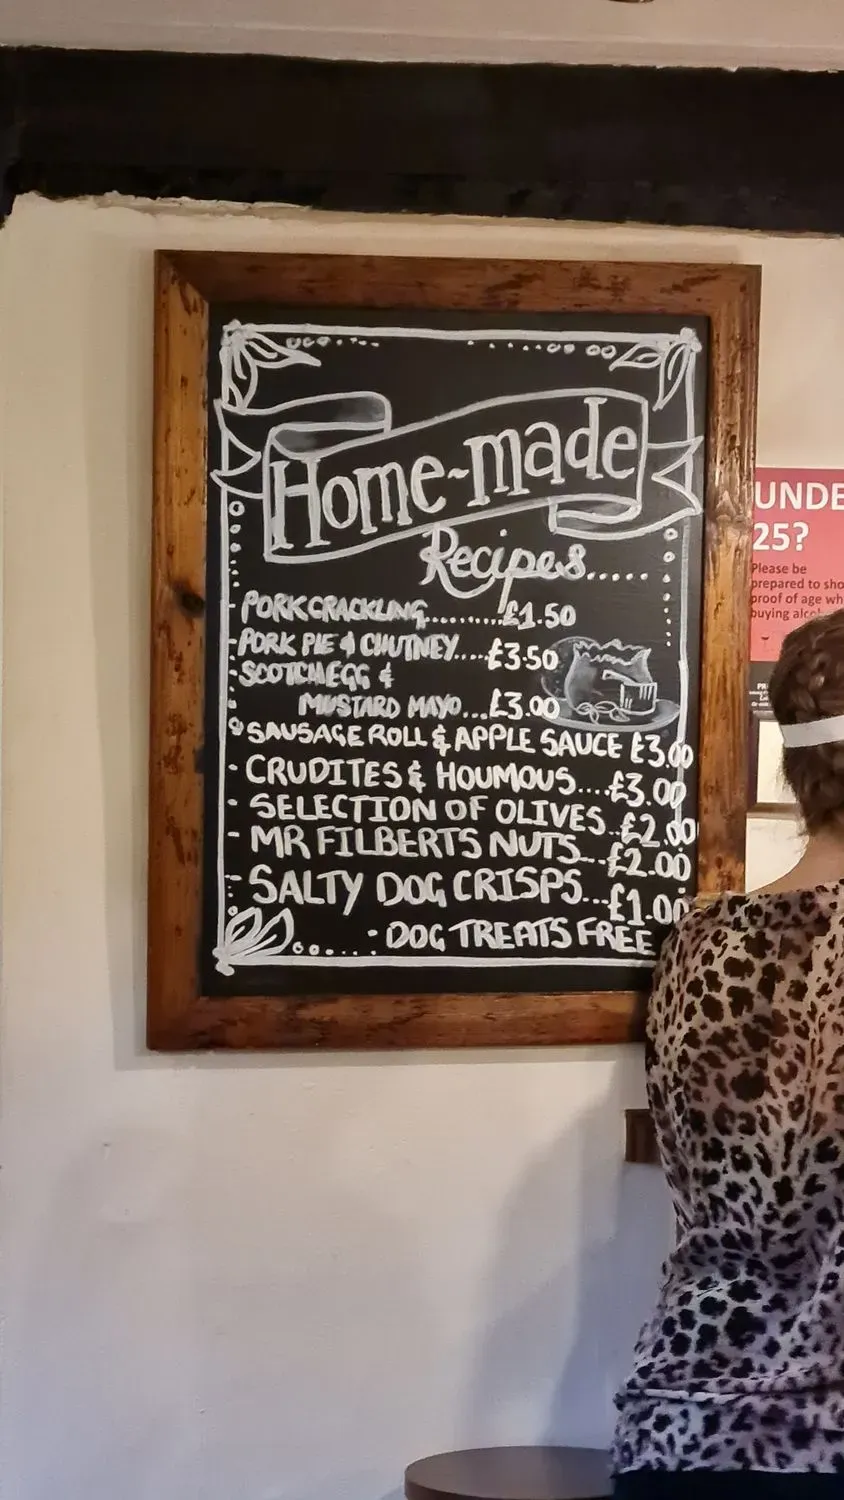 Home-made
Recipes.....
- PORK CRACKLING..........£1.50
- PORK PIE & CHUTNEY....£3.50
- SCOTCH EGG &
MUSTARD MAYO...£3.00
- SAUSAGE ROLL & APPLE SAUCE £3.00
- CRUDITES & HOUMOUS....£3.00
- SELECTION OF OLIVES..£2.00
- MR FILBERTS NUTS...£2.00
- SALTY DOG CRISPS...£1.00
· DOG TREATS FREE
UNDE
25?
Please be
prepared to sho
proof of age wh
buying alco